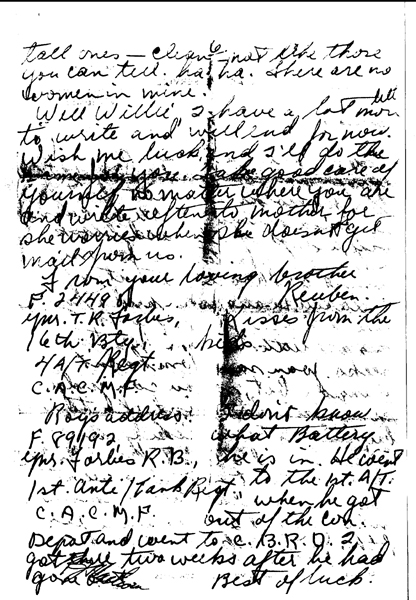 6
tall ones — clean, not like those
you can tell. ha ha. There are no
women in mine.
Well Willie I have a lot more
to write and will end for now.
Wish me luck and I'll do the
take good care of
yourself no matter where you are
and write often to mother for
she worries when she doesn't get
mail from us.
From your loving brother
Reuben.
F. 24490
Gnr. T. R. Forbes, Kisses from the
16th Bty.
4 A/T Regt.
C.A.C.M.F.
Roys address. I don't know
F. 89192, what Battery
Gnr. Forbes R.B., he is in He went
to the 1st A/T.
1st Anti/Tank Regt, when he got
C.A.C.M.F. out of the Con.
Depot and went to C.B.R.D. 2
got there two weeks after he had
gone
Best of luck.